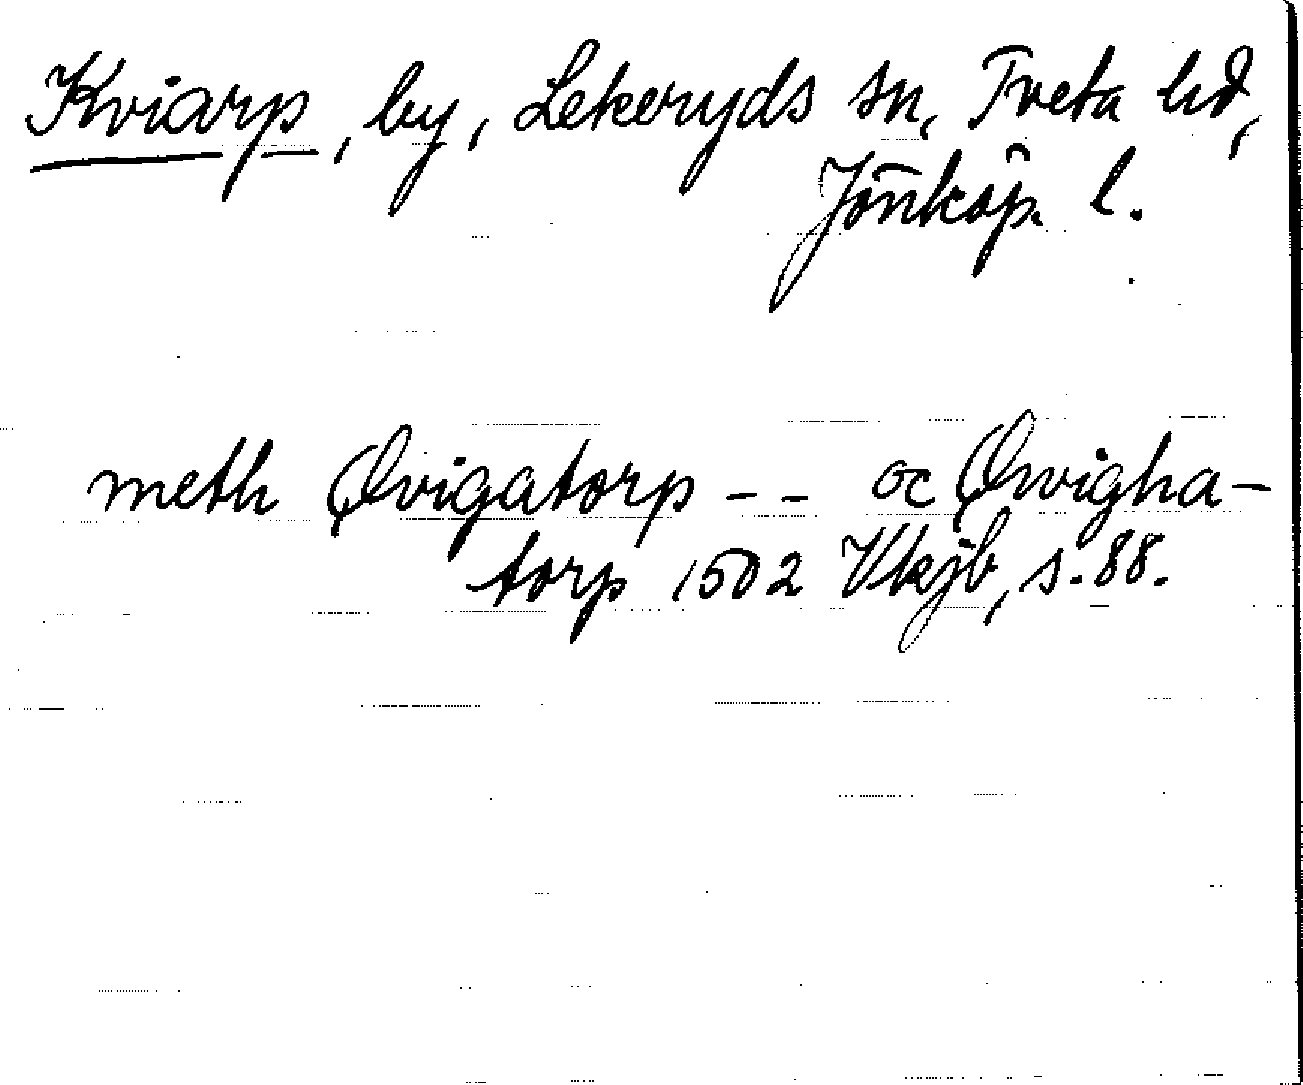 Kviarp, by, Lekeryds sn, Tveta hd,
Jönköp. l.
meth Qvigatorp -- oc Qwigha-
torp 1502 Vkjb, s. 88.